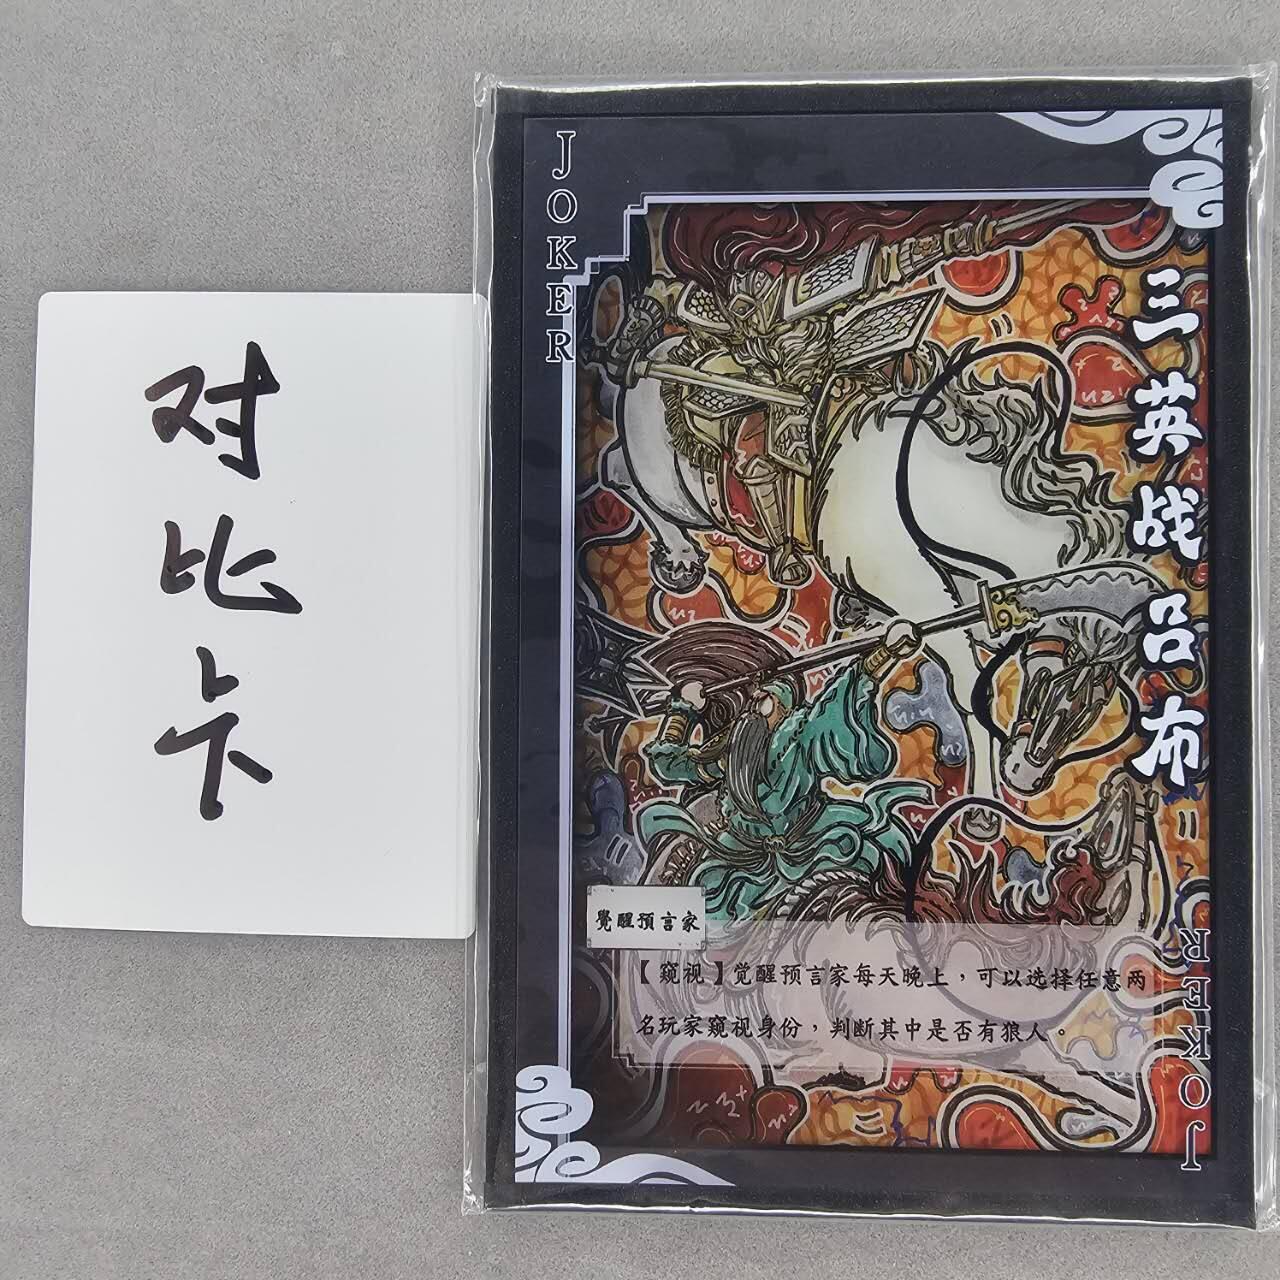 对比卡
JOKER
三英战吕布
覺醒預言家
【窥视】觉醒预言家每天晚上，可以选择任意两
名玩家窥视身份，判断其中是否有狼人。
JOKER